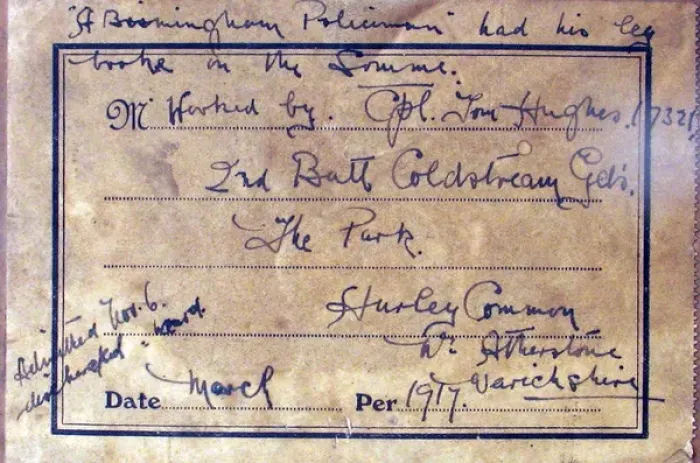 "A Birmingham Policeman" had his leg
broke on the Somme.
Mr Worked by. Cpl. Tom Hughes. (7321)
2nd Batt Coldstream Gds.
The Park.
Hurley Common
Nr Atherstone
Warickshire
Admitted Nov. 6.
discharged
Date March Per 1917.